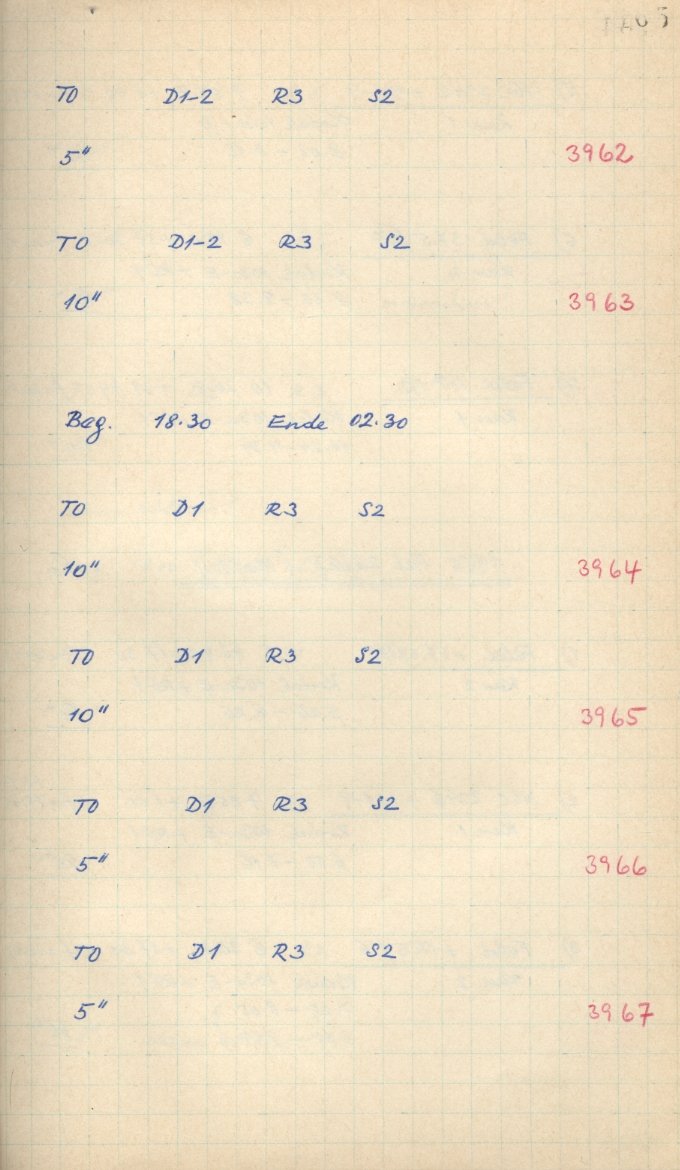 TO D1-2 R3 S2
5" 3962
TO D1-2 R3 S2
10" 3963
Bag. 18.30 Ende 02.30
TO D1 R3 S2
10" 3964
TO D1 R3 S2
10" 3965
TO D1 R3 S2
5" 3966
TO D1 R3 S2
5" 3967